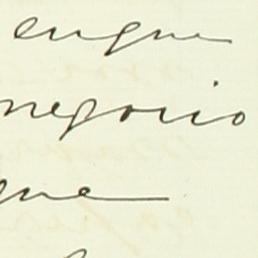 enque
negocio
que